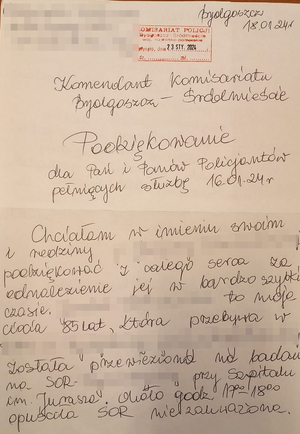 Bydgoszcz
18.01.24r
KOMISARIAT POLICJI
Bydgoszcz-Śródmieście
23 STY. 2024
Komendant Komisariatu
Bydgoszcz - Śródmieście
Podziękowanie
dla Pań i Panów Policjantów
pełniących służbę 16.01.24r
Chciałam w imieniu swoim
i rodziny
podziękować z całego serca za
odnalezienie jej w bardzo szybki
czasie.
to moja
ciocia 85 lat, która przebywa w
została przewieziona na badan
na SOR przy Szpitalu
im. Jurasza. Około godz 17⁰⁰-18⁰⁰
opuściła SOR niezauważona.